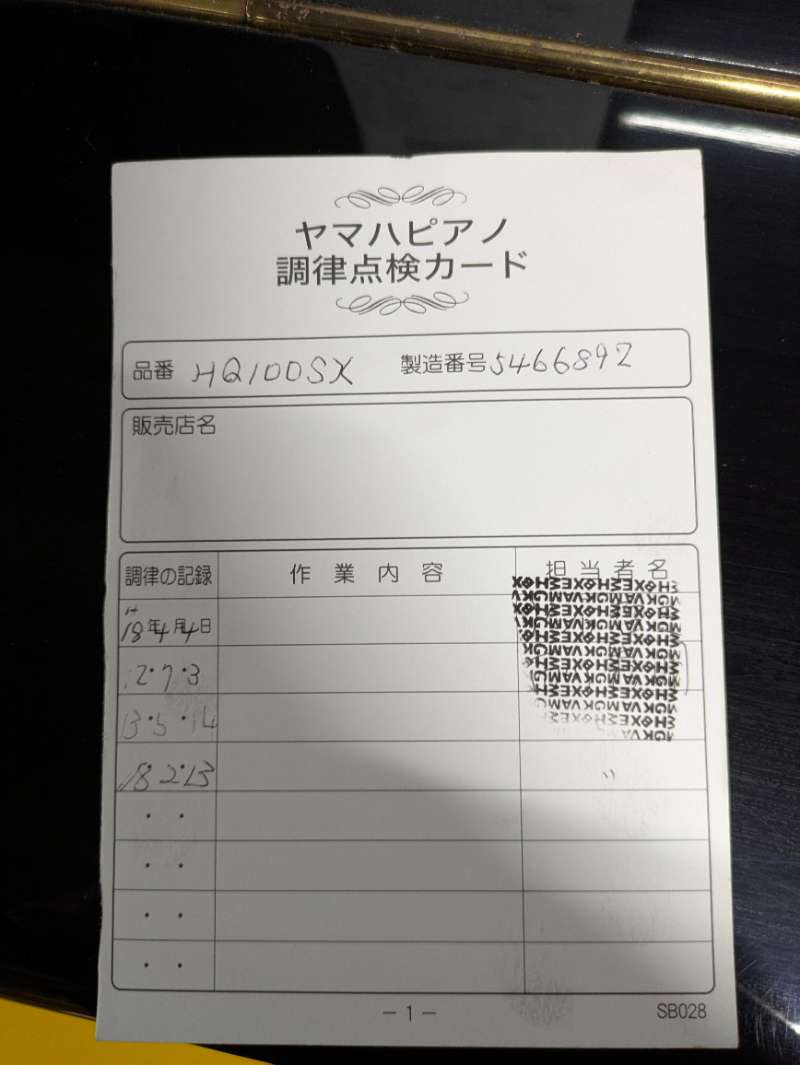 ヤマハピアノ
調律点検カード
品番 HQ100SX 製造番号 5466892
販売店名
調律の記録 作業内容 担当者名
H
18年4月4日
12・7・3
13・5・14
18 2・13 〃
- 1 -
SB028